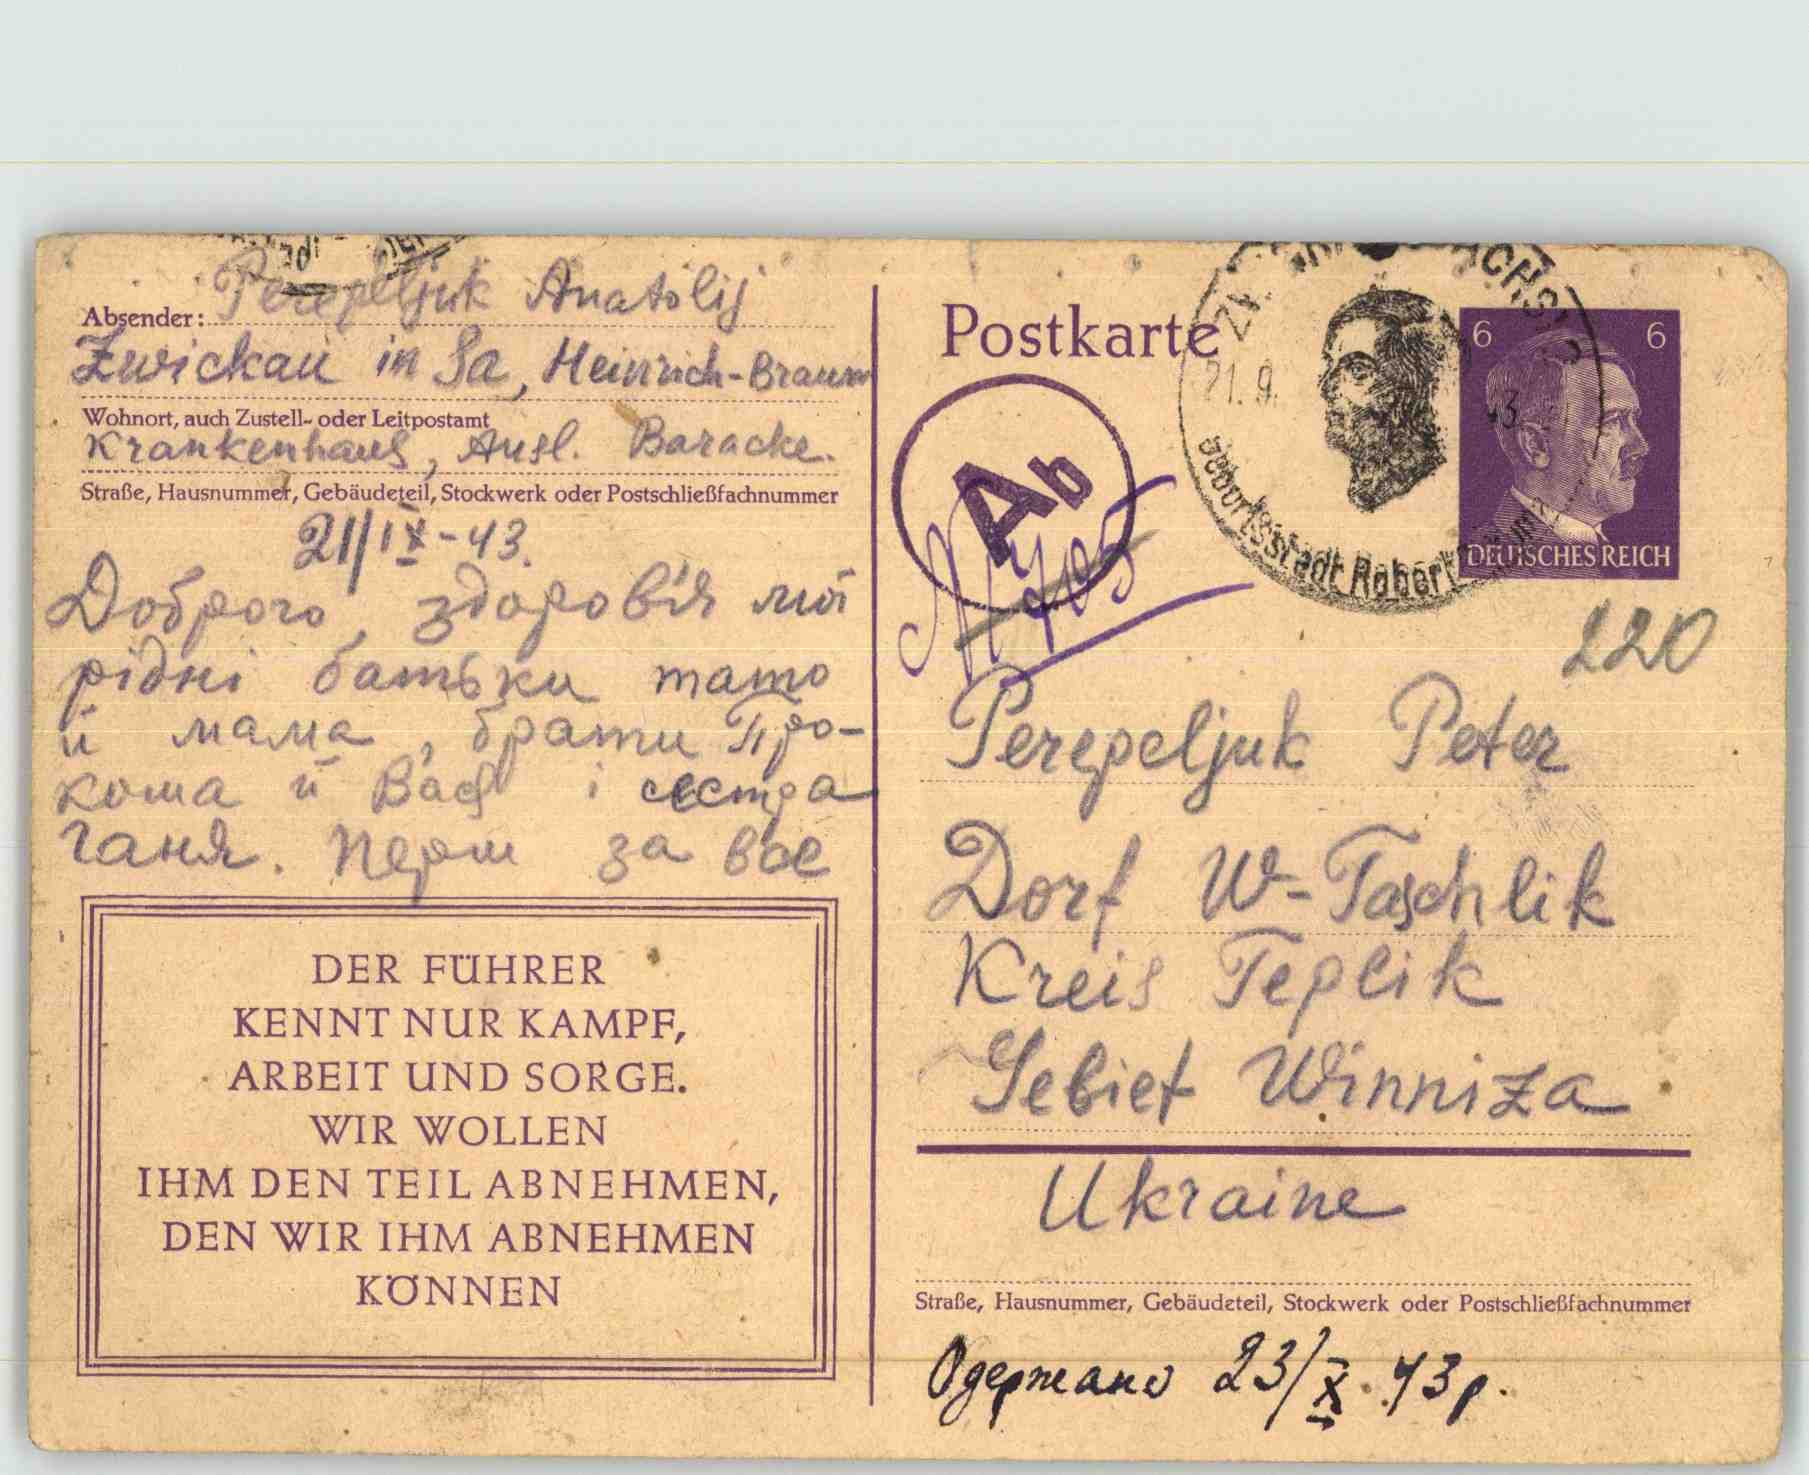 Absender: Perepeljuk Anatolij
Zwickau in Sa, Heinrich-Braun
Wohnort, auch Zustell- oder Leitpostamt
Krankenhaus, Ausl. Baracke.
Straße, Hausnummer, Gebäudeteil, Stockwerk oder Postschließfachnummer
21/IX-43.
Доброго, здоров'я мої
рідні батьки тато
й мама, брати Про-
коша й Вася і сестра
Ганя. Перш за все
DER FÜHRER
KENNT NUR KAMPF,
ARBEIT UND SORGE.
WIR WOLLEN
IHM DEN TEIL ABNEHMEN,
DEN WIR IHM ABNEHMEN
KÖNNEN
Postkarte
21.9. 43
Geburtsstadt Robert
6 6
DEUTSCHES REICH
Ab
220
Perepeljuk Peter
Dorf W-Taschlik
Kreis Teplik
Gebiet Winniza
Ukraine
Straße, Hausnummer, Gebäudeteil, Stockwerk oder Postschließfachnummer
Одержано 23/X. 43р.